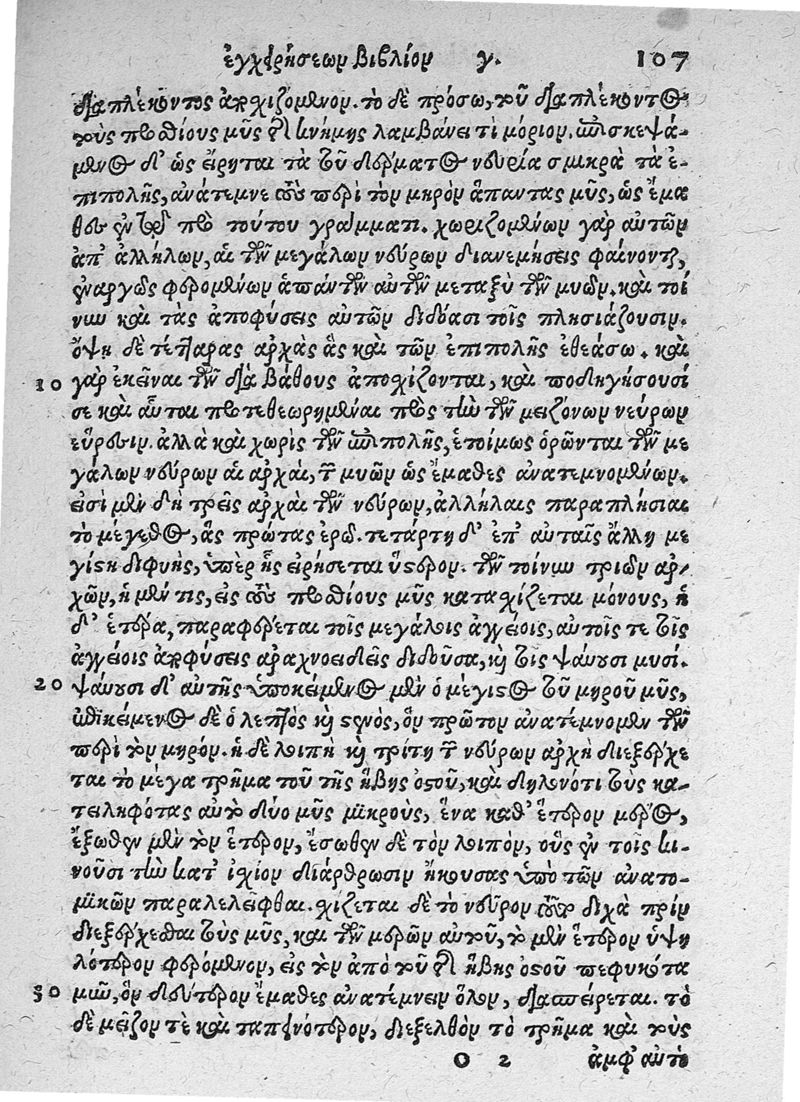 ἐγχειρήσεων βιβλίον γ. 107
διαπλέκοντος ἀρχιζόμενον. τὸ δὲ πρόσω, τοῦ διαπλέκοντος
τοὺς προσθίους μῦς τῆς κνήμης λαμβάνει τὶ μόριον. ἐπισκεψά-
μενος δ' ὡς εἴρηται τὰ τοῦ δέρματος νευρία σμικρὰ τὰ ἐ-
πιπολῆς, ἀνάτεμνε τοὺς περὶ τὸν μηρὸν ἅπαντας μῦς, ὡς ἔμα
θες ἐν τῷ πρὸ τούτου γράμματι. χωριζομένων γὰρ αὐτῶν
ἀπ' ἀλλήλων, αἱ τῶν μεγάλων νεύρων διανεμήσεις φαίνονται,
ἐναργῶς φερομένων ἁπάντων αὐτῶν μεταξὺ τῶν μυῶν. καὶ τοί
νυν καὶ τὰς ἀποφύσεις αὐτῶν διδόασι τοῖς πλησιάζουσιν.
ὄψη δὲ τέτταρας ἀρχὰς ἃς καὶ τῶν ἐπιπολῆς ἐθεάσω. καὶ
10 γὰρ ἐκεῖναι τῶν διὰ βάθους ἀποχίζονται, καὶ ποδηγήσουσί
σε καὶ αὗται προτεθεωρημέναι πρὸς τὴν τῶν μειζόνων νεύρων
εὕρεσιν. ἀλλὰ καὶ χωρὶς τῶν ἐπιπολῆς, ἑτοίμως ὁρῶνται τῶν με
γάλων νεύρων αἱ ἀρχαὶ, τῶν μυῶν ὡς ἔμαθες ἀνατεμνομένων.
εἰσὶ μὲν δὴ τρεῖς ἀρχαὶ τῶν νεύρων, ἀλλήλαις παραπλήσιαι
τὸ μέγεθος, ἃς πρώτας ἐρῶ. τετάρτη δ' ἐπ' αὐταῖς ἄλλη με
γίστη διφυὴς, ὑπὲρ ἧς εἰρήσεται ὕστερον. τῶν τοίνυν τριῶν ἀρ-
χῶν, ἡ μέν τις, εἰς τοὺς προσθίους μῦς καταχίζεται μόνους, ἡ
δ' ἑτέρα, παραφέρεται τοῖς μεγάλοις ἀγγείοις, αὐτοῖς τε τοῖς
ἀγγείοις ἐκφύσεις ἀραχνοειδεῖς διδοῦσα, καὶ τοῖς ψάυουσι μυσί.
20 ψάυουσι δ' αὐτῆς ὑποκείμενος μὲν ὁ μέγιστος τοῦ μηροῦ μῦς,
ἐπικείμενος δὲ ὁ λεπτὸς καὶ στενὸς, ὃν πρῶτον ἀνατέμνομεν τῶν
περὶ τὸν μηρόν. ἡ δὲ λοιπὴ καὶ τρίτη τῶν νεύρων ἀρχὴ διεξέρχε
ται τὸ μέγα τρῆμα τοῦ τῆς ἥβης ὀστοῦ, καὶ δηλονότι τοὺς κα-
τειληφότας αὐτὸ δύο μῦς μικροὺς, ἕνα καθ' ἕτερον μέρος,
ἔξωθεν μὲν τὸν ἕτερον, ἔσωθεν δὲ τὸν λοιπὸν, οὓς ἐν τοῖς κι-
νοῦσι τὴν κατ' ἰχίον διάρθρωσιν ἤκουσας ὑπὸ τῶν ἀνατο-
μικῶν παραλελεῖφθαι. χίζεται δὲ τὸ νεῦρον τοῦτο διχὰ πρὶν
διεξέρχεσθαι τοὺς μῦς, καὶ τῶν μερῶν αὐτοῦ, τὸ μὲν ἕτερον ὑψη
λότερον φερόμενον, εἰς τὸν ἀπὸ τοῦ τῆς ἥβης ὀστοῦ πεφυκότα
30 μῦν, ὃν δεύτερον ἔμαθες ἀνατέμνειν ὅλον, διασπείρεται. τὸ
δὲ μεῖζον τὲ καὶ ταπεινότερον, διεξελθὸν τὸ τρῆμα καὶ τοὺς
O 2 ἀμφ' αὐτὸ